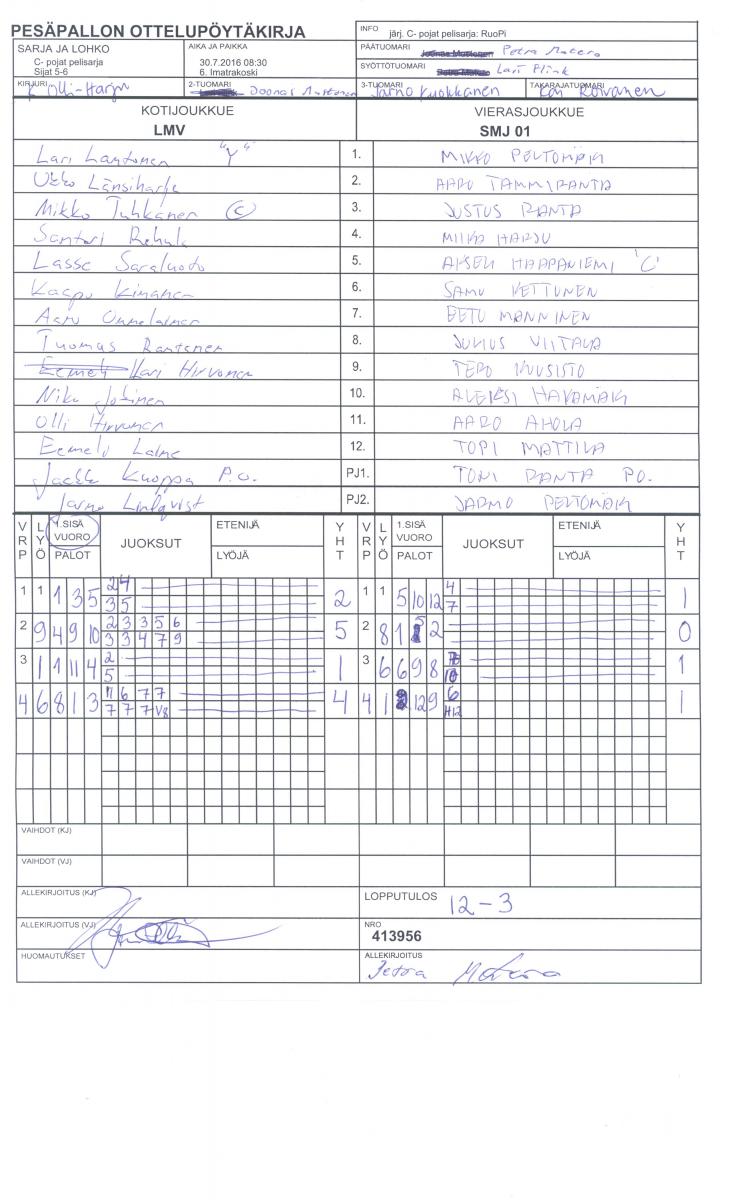 PESÄPALLON OTTELUPÖYTÄKIRJA
INFO järj. C- pojat pelisarja: RuoPi
SARJA JA LOHKO
C- pojat pelisarja
Sijat 5-6
AIKA JA PAIKKA
30.7.2016 08:30
6. Imatrakoski
PÄÄTUOMARI Petra Matero
SYÖTTÖTUOMARI Lari Plink
KIRJURI Olli-Harjn
2-TUOMARI Joonas
3-TUOMARI Jarno Kuokkanen
TAKARAJATUOMARI Koivanen
KOTIJOUKKUE
LMV
VIERASJOUKKUE
SMJ 01
Lari Lantonen "Y" 1. MIKKO PELTOMÄKI
Ukko Länsiharju 2. AARO TAMMIRANTA
Mikko Tuhkanen C 3. JUSTUS RANTA
Santeri Rehula 4. MIIKA HARJU
Lasse Saraluoto 5. AKSELI HAAPANIEMI "C"
Kaapo Kinanen 6. SAMU KETTUNEN
Aaro Onnelainen 7. EETU MANNINEN
Tuomas Rantanen 8. JULIUS VIITALA
Eemeli Kari Hirvonen 9. TERO KUUSISTO
Niko Jokinen 10. ALEKSI HAKAMÄKI
Olli Hirvonen 11. AARO AHOLA
Eemeli Laine 12. TOPI MATTILA
Jaakko Kuoppa P.O. PJ1. TONI RANTA PO.
Jarmo Lindqvist PJ2. JARMO PELTOMÄKI
VRP LYÖ 1.SISÄ VUORO PALOT JUOKSUT ETENIJÄ LYÖJÄ YHT VRP LYÖ 1.SISÄ VUORO PALOT JUOKSUT ETENIJÄ LYÖJÄ YHT
1 1 1 3 5 2 4 2 1 1 5 10 12 4 1
3 5 7
2 9 4 9 10 2 3 3 5 6 5 2 8 1 5 2 0
3 3 4 7 9
3 1 1 11 4 2 1 3 6 6 9 8 1
5 10
4 6 8 1 3 11 6 7 7 4 4 1 2 12 9 6 1
7 7 7 V8 H12
VAIHDOT (KJ)
VAIHDOT (VJ)
ALLEKIRJOITUS (KJ)
LOPPUTULOS 12-3
ALLEKIRJOITUS (VJ)
NRO
413956
HUOMAUTUKSET
ALLEKIRJOITUS
Petra Matero